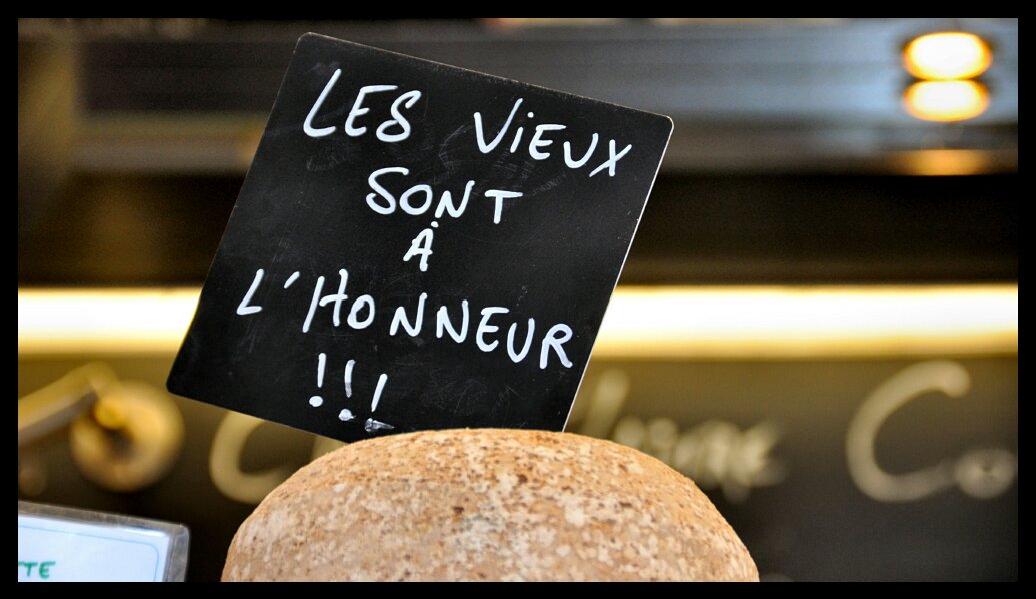 LES ViEUX
SONT
À
L'HONNEUR
!!!
TTE